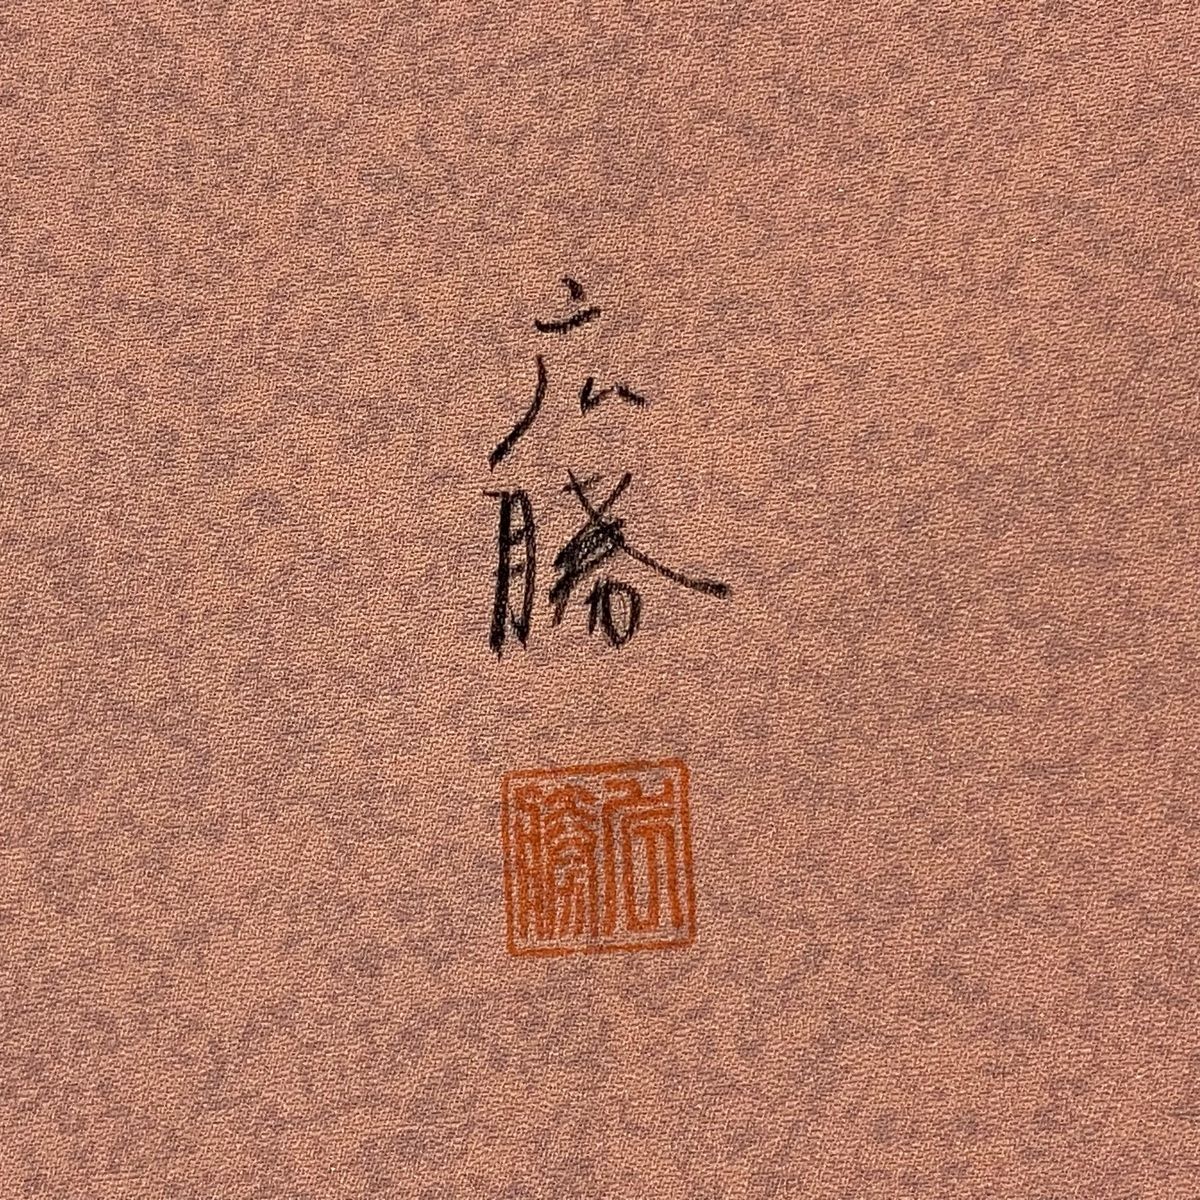 広
勝
広勝